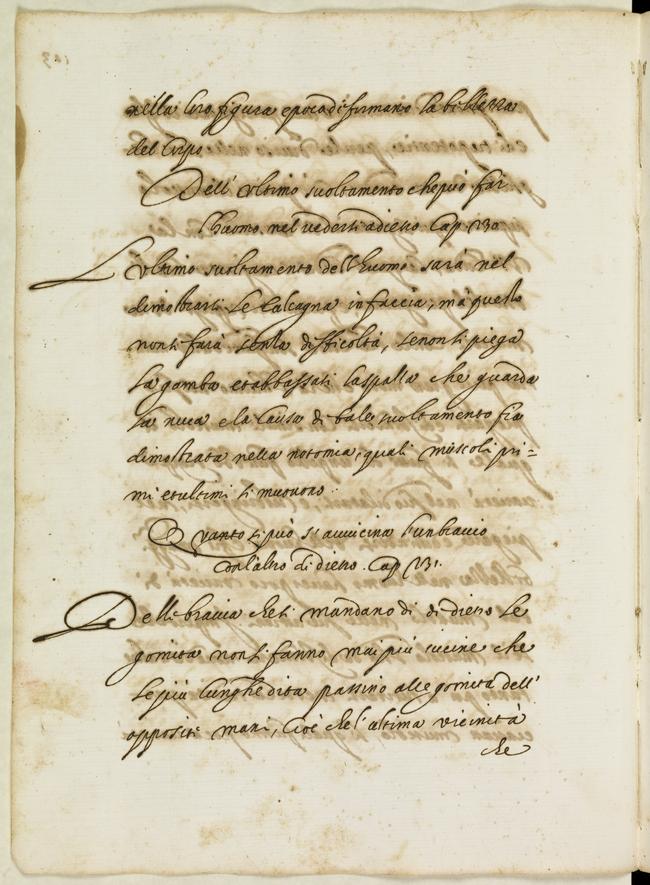 nella loro figura e poco difformano la bellezza
del Corpo
Dell' ultimo suoltamento che può far
l'huomo nel uedersi adietro Cap 230
L'ultimo suoltamento dell'huomo sarà nel
dimostrarsi le Calcagna in faccia, ma questo
non si farà senza difficoltà, se non si piega
la gamba et abbassasi la spalla che guarda
la nuca e la Causa di tale suoltamento fia
dimostrata nella notomia, quali muscoli pri=
mi et ultimi si muouono
Quanto si può s'auuicina l'un braccio
con l'altro di dietro. Cap 231.
Delli braccia che si mandano di dietro le
gomita non si fanno mai più uicine che
le più lunghe dita passino alle gomita dell'
opposite mani, Cioè che l'ultima uicinità
che